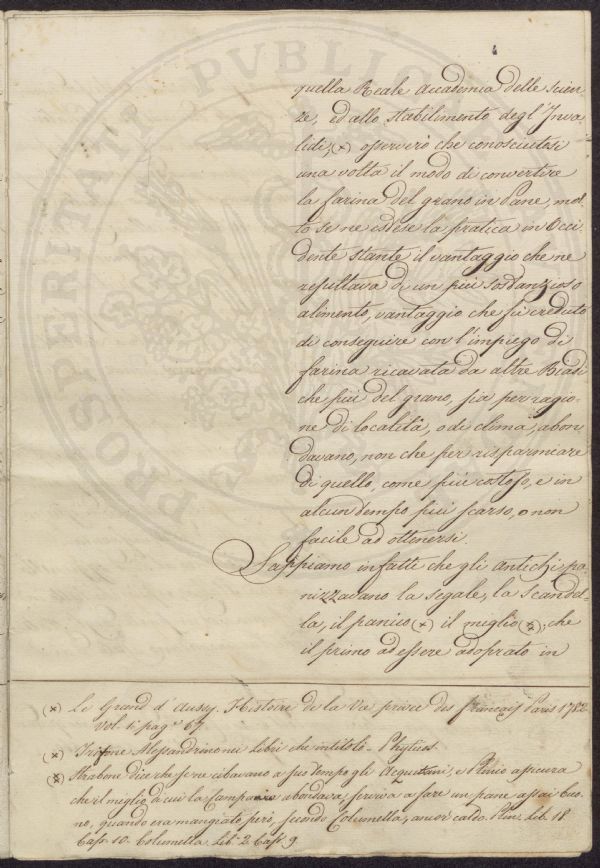 quella Reale Accademia delle Scien
ze, ed allo stabilimento degl'Inva
lidi, (×) osserverò che conosciutosi
una volta il modo di convertire
la farina del grano in Pane, mol
to se ne estese la pratica in Occi
dente stante il vantaggio che ne
resultava di un più sostanzioso
alimento, vantaggio che fu creduto
di conseguire con l'impiego di
farina ricavata da altre Biade
che più del grano, sia per ragio-
ne di località, o di clima, abon
davano, non che per risparmiare
di quello, come più costoso, e in
alcun tempo più scarso, o non
facile ad ottenersi.
Sappiamo infatti che gli antichi pa-
nizzavano la segale, la scandel-
la, il panico (×) il miglio (×); che
il primo ad essere adoprato in
(×) Le Grand d'Aussy. Histoire de la Vie privée des françois Paris 1782
Vol. 1: pag.e 67.
(×) Trifone Alessandrino nei Libri che intitolò - Phytics
(×) Strabone dice che se ne cibavano a suo tempo gli Aequitani, e Plinio assicura
che il meglio di cui la Campania abondava, serviva a fare un pane assai buo-
no, quando era mangiato però, secondo Columella, ancor caldo. Plin. Lib. 18
Cap. 10. Columella Lib. 2 Cap. 9
PROSPERITATI PVBLICAE